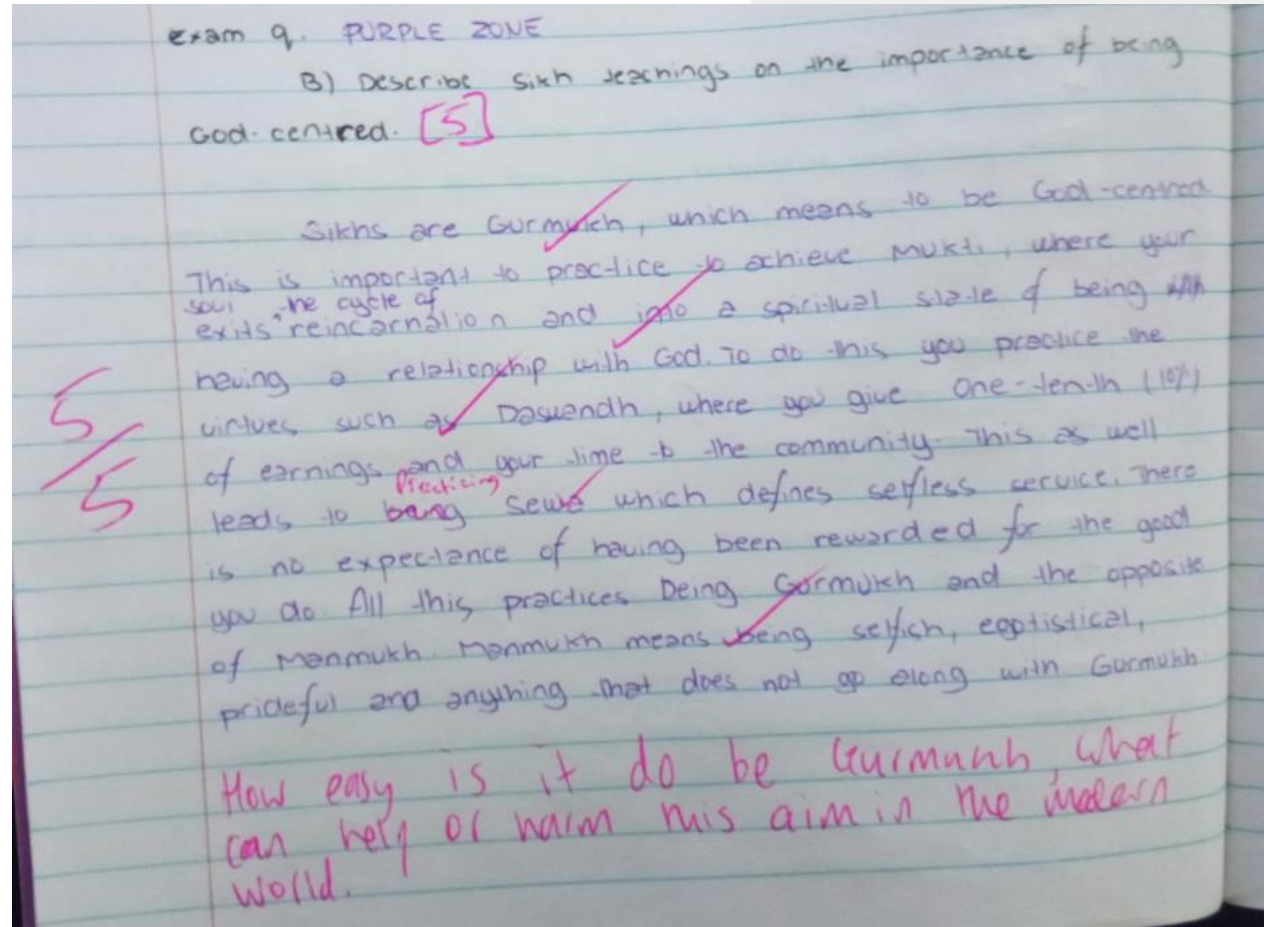 exam q. PURPLE ZONE
B) Describe Sikh teachings on the importance of being
God-centred. [5]
Sikhs are Gurmukh, which means to be God-centred
This is important to practice to achieve Mukti, where your
soul exits the cycle of reincarnation and into a spiritual state of being
having a relationship with God. To do this you practice the
virtues such as Daswandh, where you give one-tenth (10%)
of earnings and your time to the community. This as well
leads to being Practicing Sewa which defines selfless service. There
is no expectance of having been rewarded for the good
you do. All this practices Being Gurmukh and the opposite
of Manmukh. Manmukh means being selfish, egotistical,
prideful and anything that does not go along with Gurmukh
5/5
How easy is it do be Gurmukh, what
can help or harm this aim in the modern
world.